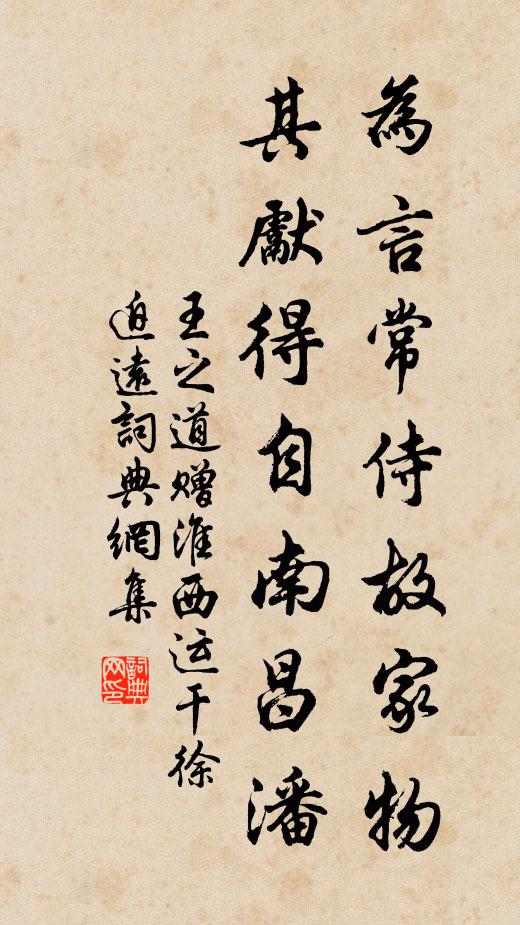 為言常侍故家物
其獻得自南昌潘
王之道赠淮西运干徐
追遠詞典網集
詞典
网印